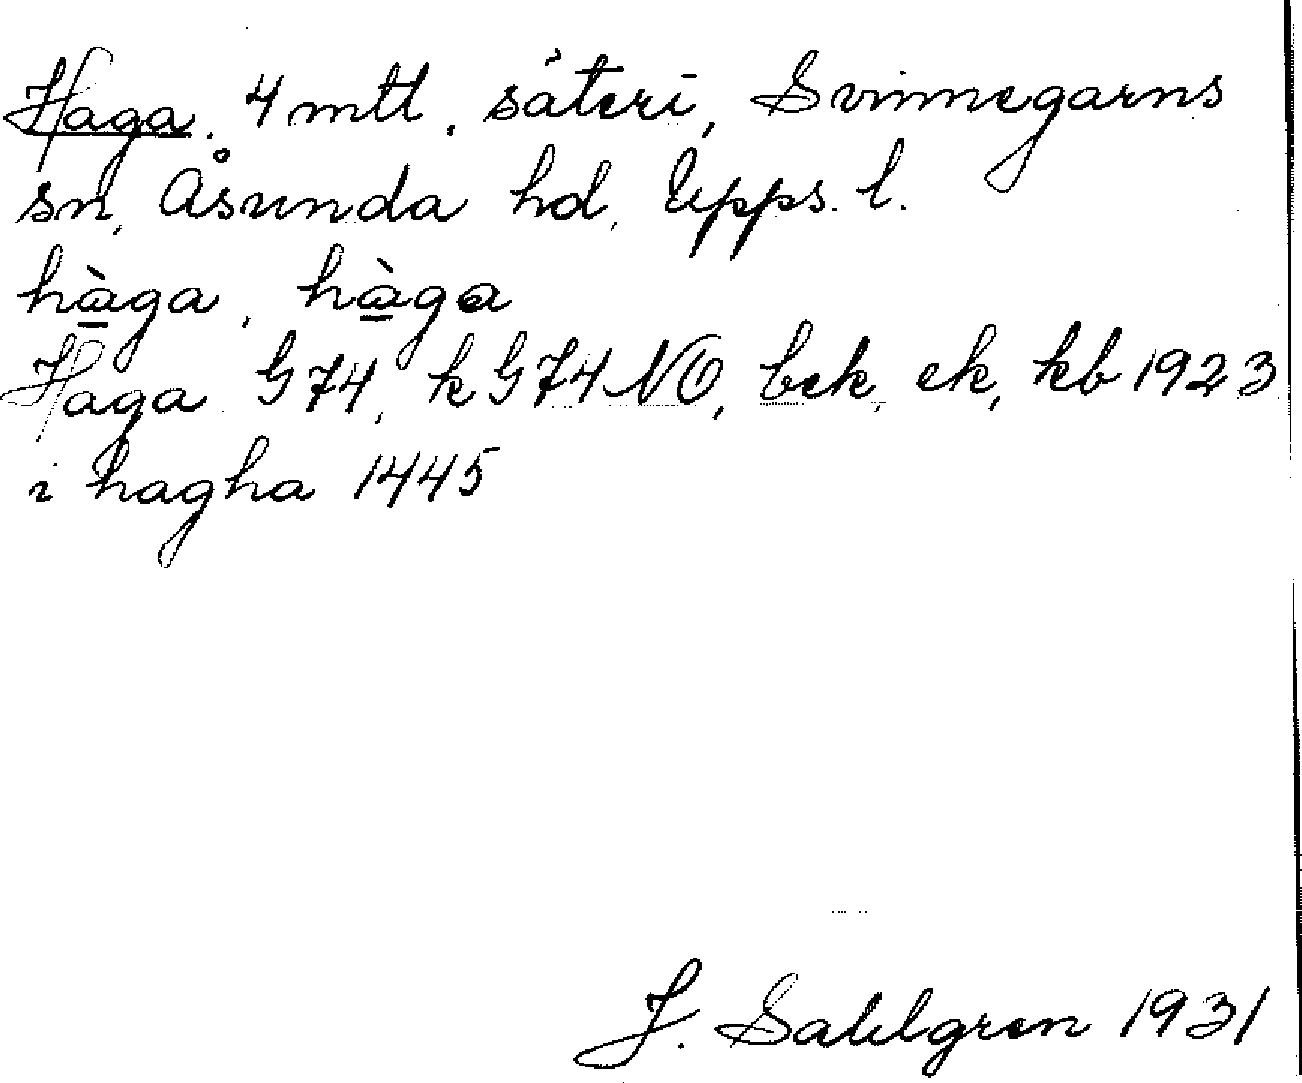 Haga, 4 mtl, säteri, Svinnegarns
sn, Åsunda hd, Upps. l.
hàga, hàga
Haga G74, k G74 NO, bek, ek, kb 1923
i hagha 1445
J. Sahlgren 1931